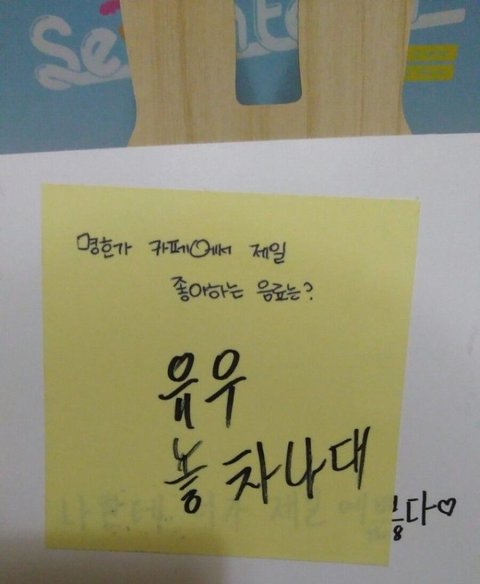 명호가 카페에서 제일
좋아하는 음료는?
유우
농 차나대
다♡